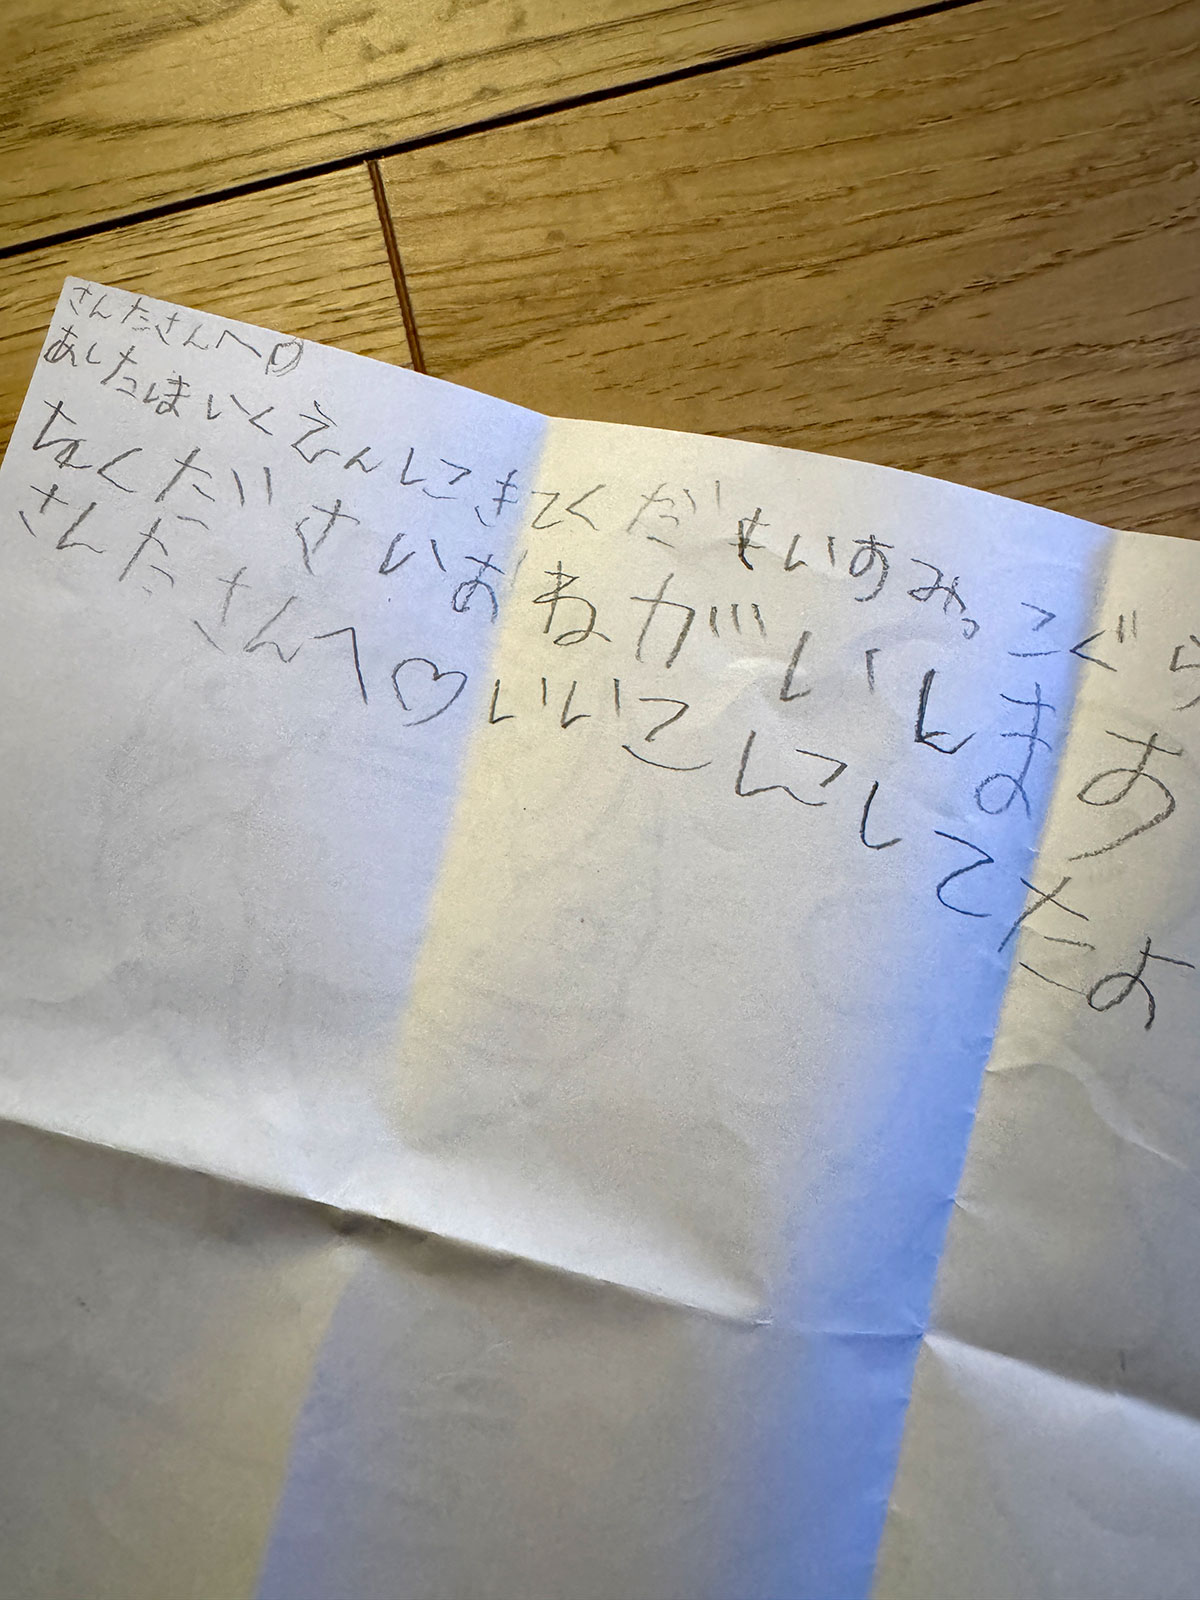 さんたさんへ♡
あしたほいくえんにきてくだもいすみっこぐら
ちょくださいおねがいいします
さんたさんへ♡いいこにしてたよ